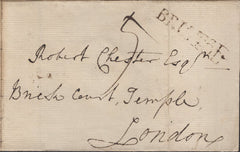 Robert Chester Esqr
Brick Court, Temple
London